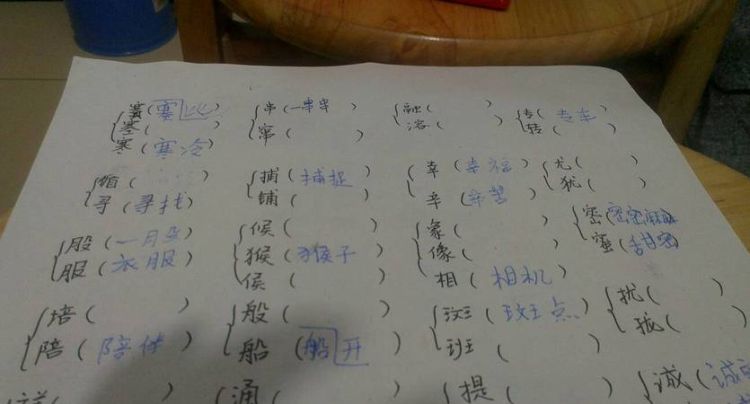 赛(赛比) 串(一串串 融( ) 专(专车
塞( ) 窜( ) 溶( ) 转( )
寒(寒冷
循( ) 捕(捕捉 幸(幸福 尤( )
寻(寻找) 铺( ) 辛(辛苦 犹( )
股(一月殳) 候( ) 象( ) 密(密密麻麻
服(衣服) 猴(猴子 像( ) 蜜(舌甘密)
侯( ) 相(相机)
培( ) 般( ) 斑(斑点) 扰( )
陪(陪伴) 船(船开) 班( ) 拢( )
( ) 通( ) 提( ) 诚(诚